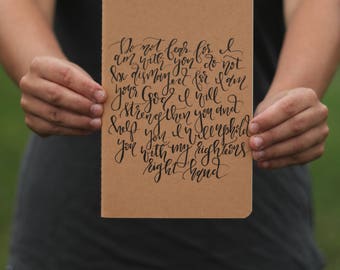 Do not fear for I
am with you do not
be dismayed for I am
your God I will
strengthen you and
help you I will uphold
you with my righteous
right hand